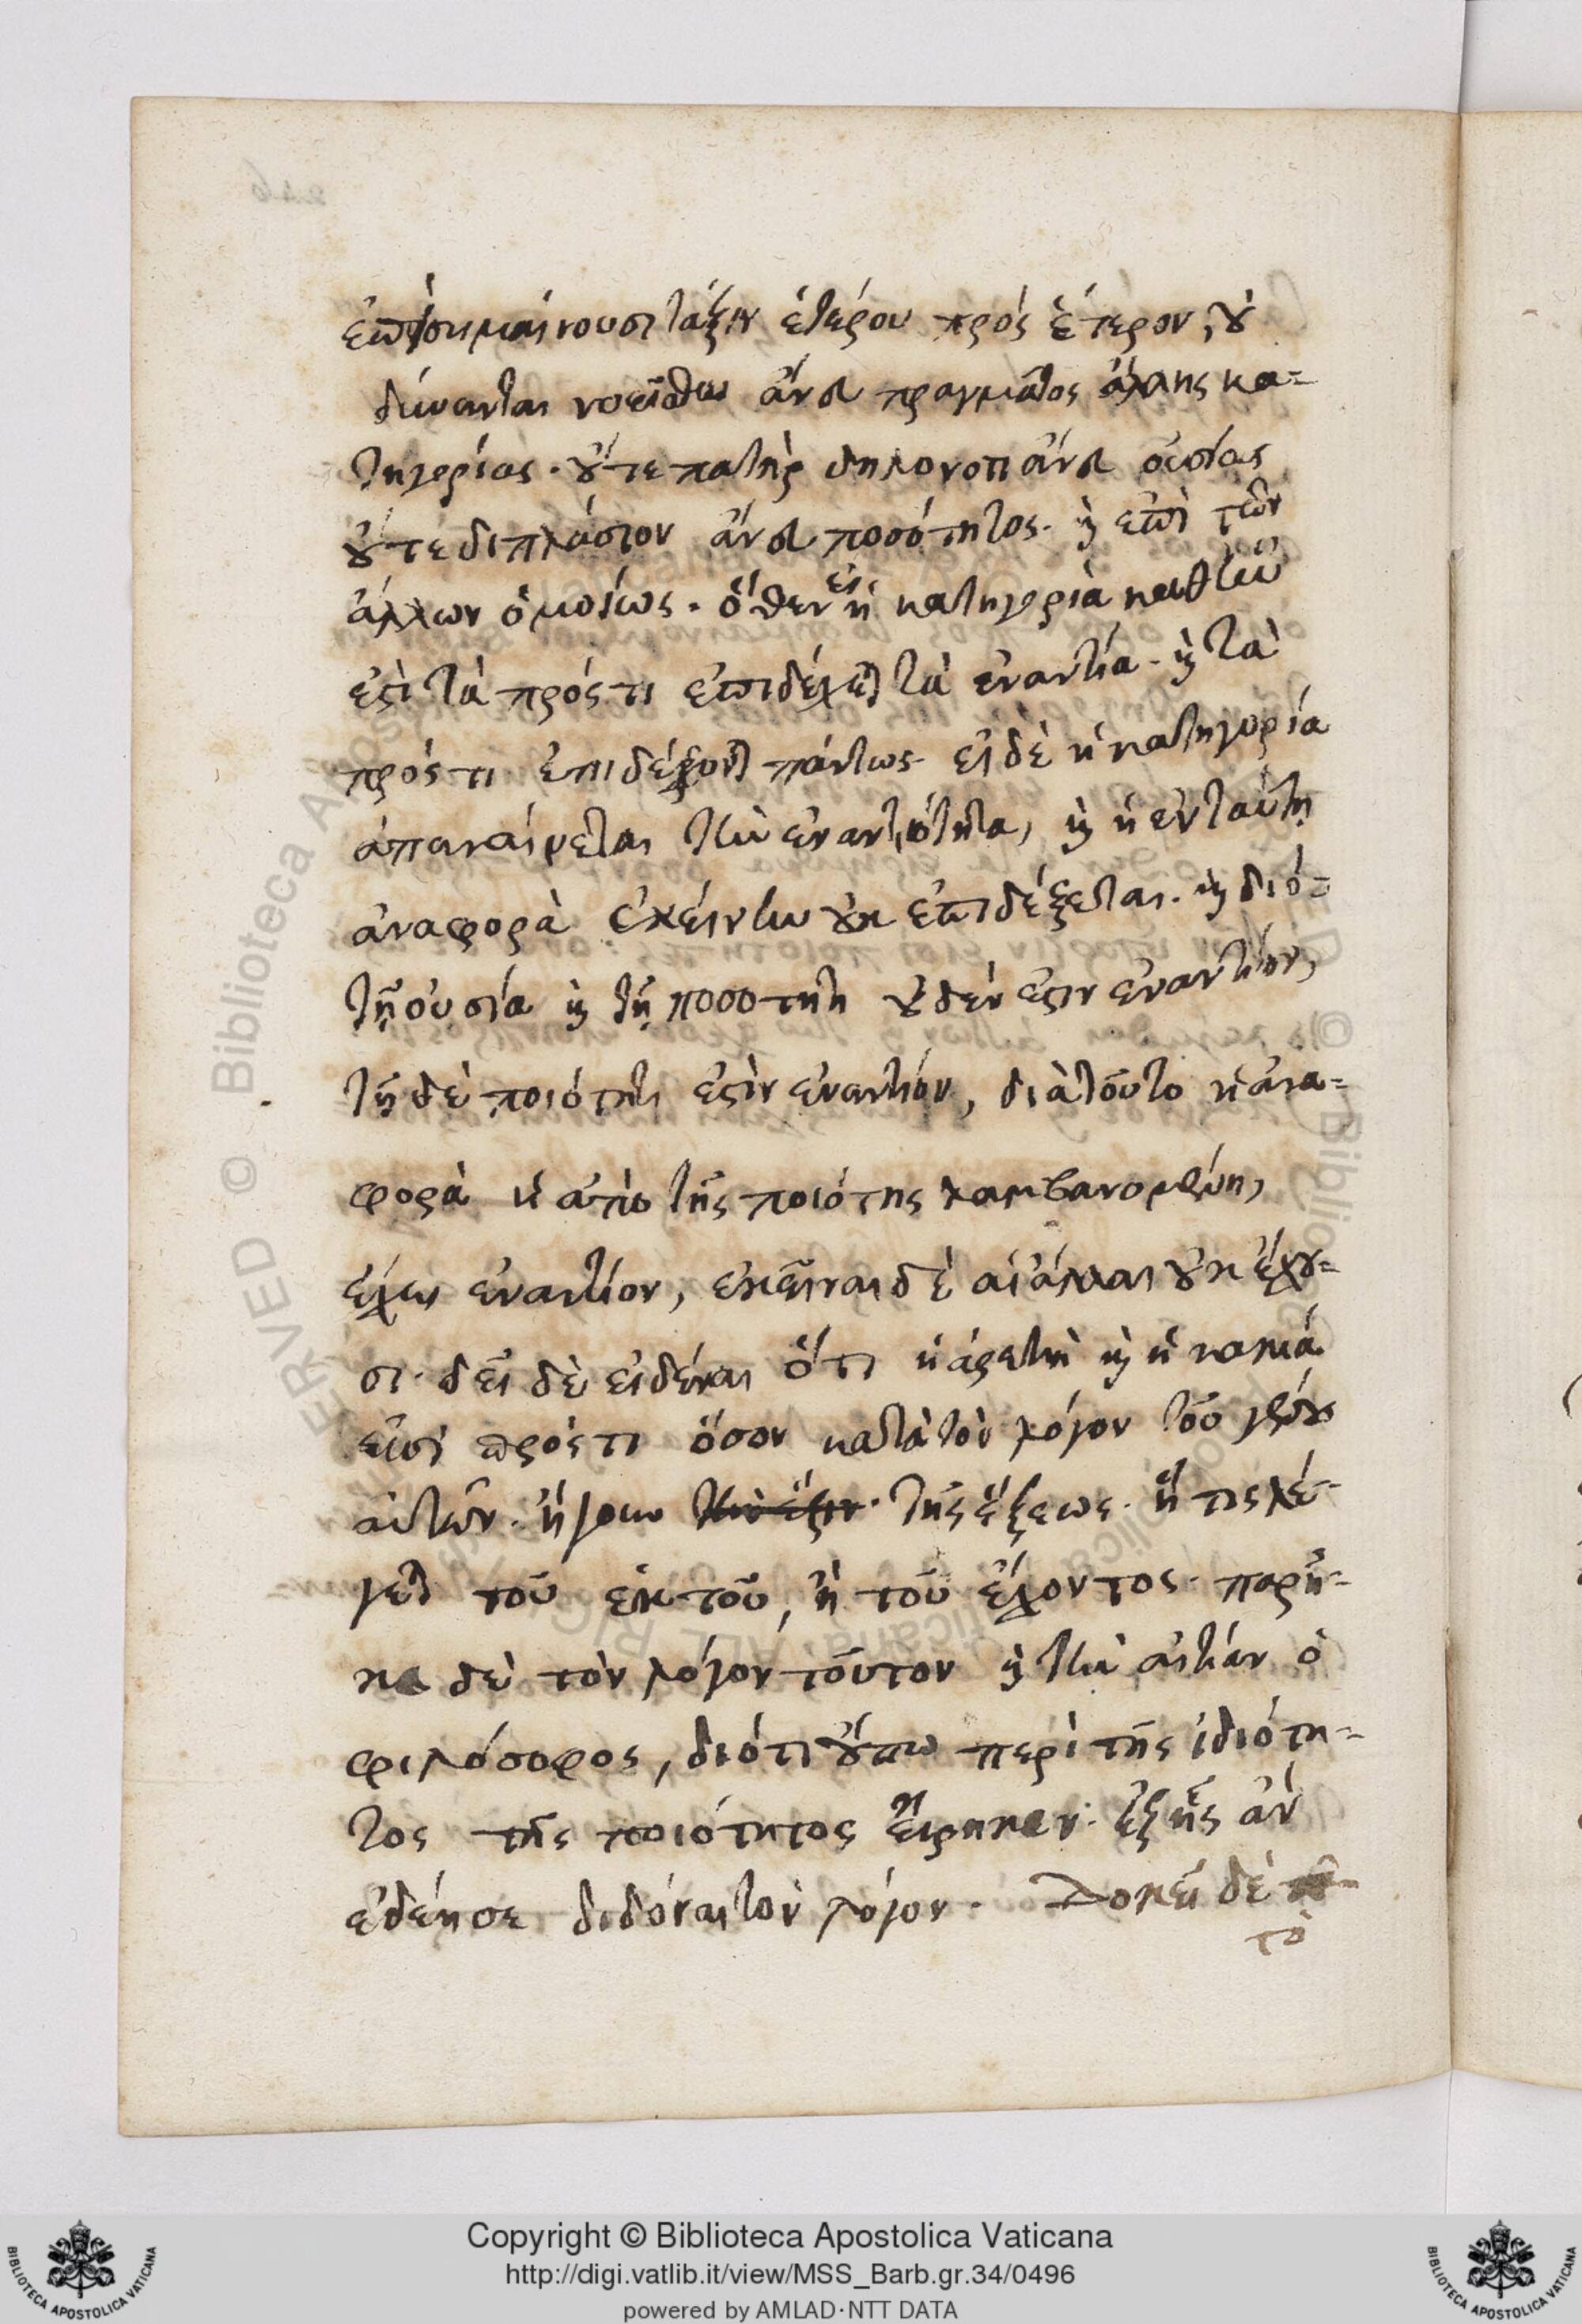 ἐπισημαίνουσι τάξιν ἑτέρου πρὸς ἕτερον, οὐ
δύνανται νοεῖσθαι ἄνευ πραγμάτος ἄλλης κα-
τηγορίας. οὔτε πατὴρ δηλονότι ἄνευ οὐσίας
οὔτε διπλάσιον ἄνευ ποσότητος. καὶ ἐπὶ τῶν
ἄλλων ὁμοίως. ὅθεν εἰ ἡ κατηγορία καθ' ἣν
ἐστὶ τὰ πρός τι ἐπιδέχεται τὰ ἐναντία. καὶ τὰ
πρός τι ἐπιδέξονται πάντως. εἰ δὲ ἡ κατηγορία
ἀπαναίρεται τὴν ἐναντιότητα, καὶ ἡ ἐν ταύτῃ
ἀναφορὰ ἐκείνην οὐκ ἐπιδέξεται. καὶ διό-
τῇ οὐσία καὶ τῇ ποσοτητι οὐδέν ἐστιν ἐναντίον,
τῇ δὲ ποιότητι ἐστὶν ἐναντίον, διὰ τοῦτο ἡ ἀνα-
φορὰ ἡ ἀπὸ τῆς ποιότης λαμβανομένη,
ἔχει ἐναντίον, ἐκεῖναι δὲ αἱ ἄλλαι οὐκ ἔχου-
σι. δεῖ δὲ εἰδέναι ὅτι ἡ ἀρετὴ καὶ ἡ κακία
εἰσὶ πρός τι ὅσον κατὰ τὸν λόγον τοῦ γένους
αὐτῶν. ἤγουν τὴν ἕξιν. τῆς ἕξεως. ἥτις λέ-
γεται τοῦ ἑκτοῦ, ἢ τοῦ ἔχοντος. παρῆ-
κε δὲ τὸν λόγον τοῦτον καὶ τὴν αἰτίαν ὁ
φιλόσοφος, διότι οὔπω περὶ τῆς ἰδιότη-
τος τῆς ποιότητος εἴρηκεν. ἐξ ἧς ἂν
ἐδέησε διδόναι τὸν λόγον. Δοκεῖ δὲ
τὸ
Copyright © Biblioteca Apostolica Vaticana
http://digi.vatlib.it/view/MSS_Barb.gr.34/0496
powered by AMLAD·NTT DATA
BIBLIOTECA APOSTOLICA VATICANA
BIBLIOTECA APOSTOLICA VATICANA